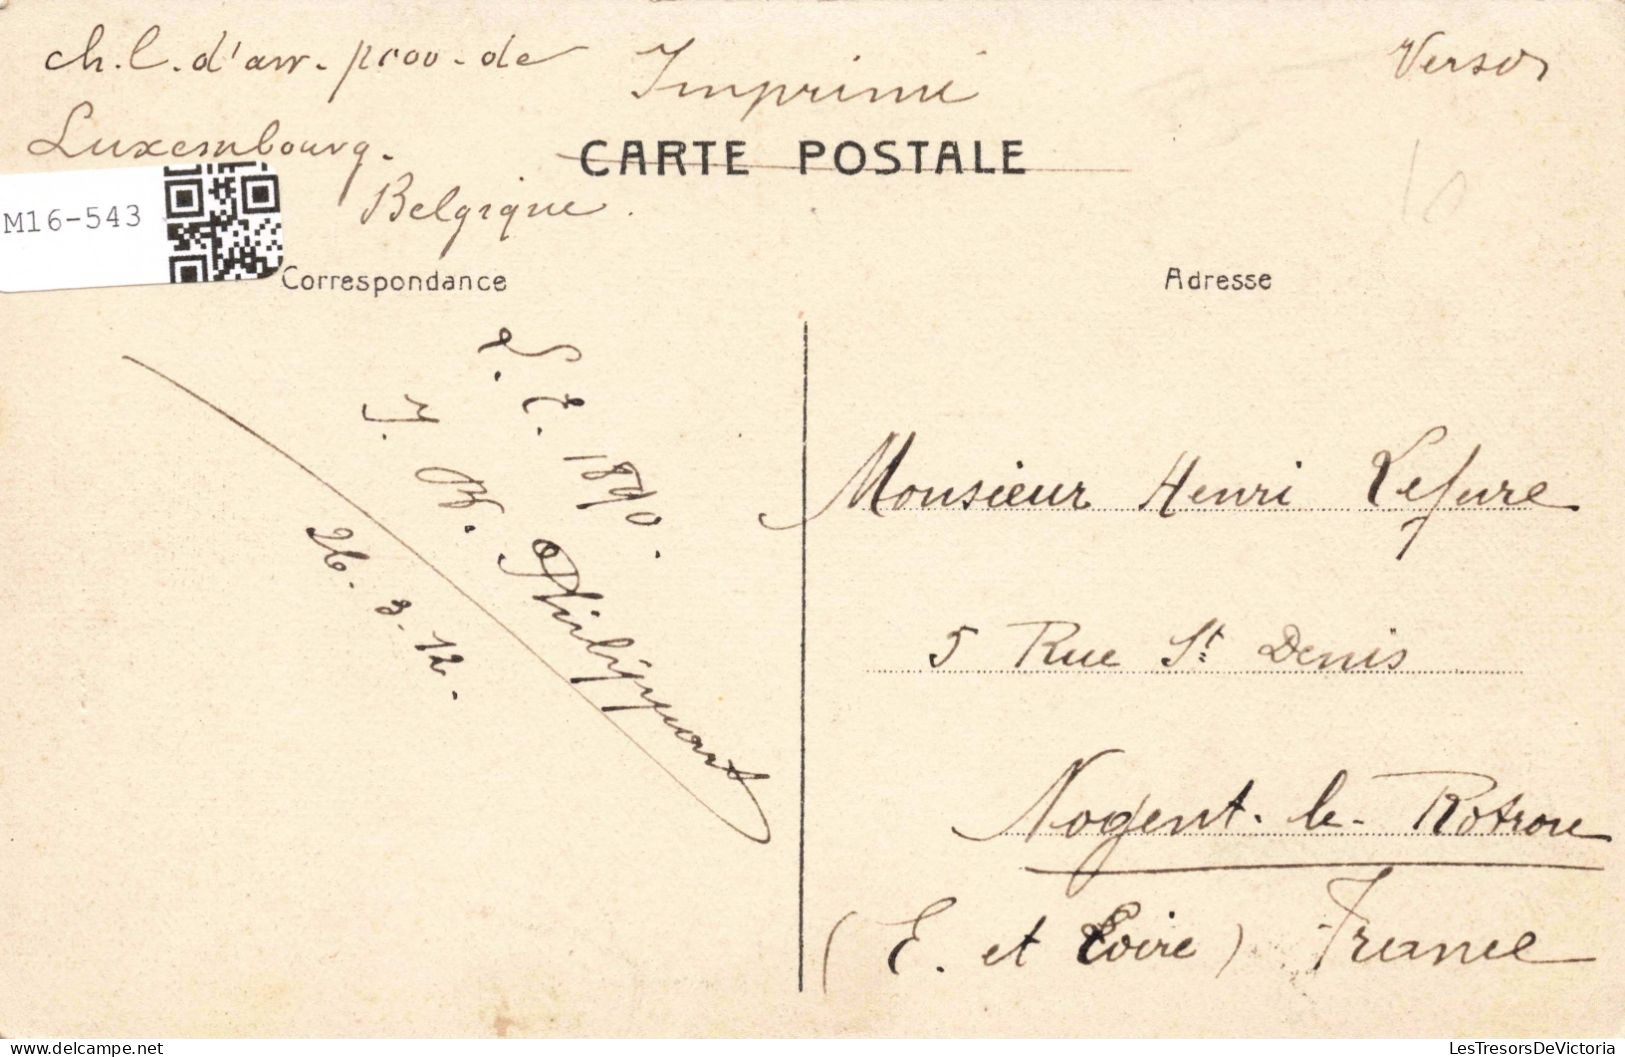 ch. l. d'arr. prov. de
Luxembourg.
Belgique.
Imprimé
Verso
CARTE POSTALE
M16-543
Correspondance
Adresse
L. T. 1890.
J. B. Philippart
26. 3. 12.
Monsieur Henri Lefevre
5 Rue St Denis
Nogent-le-Rotrou
(E. et Loire) France
LesTresorsDeVictoria
delcampe.net